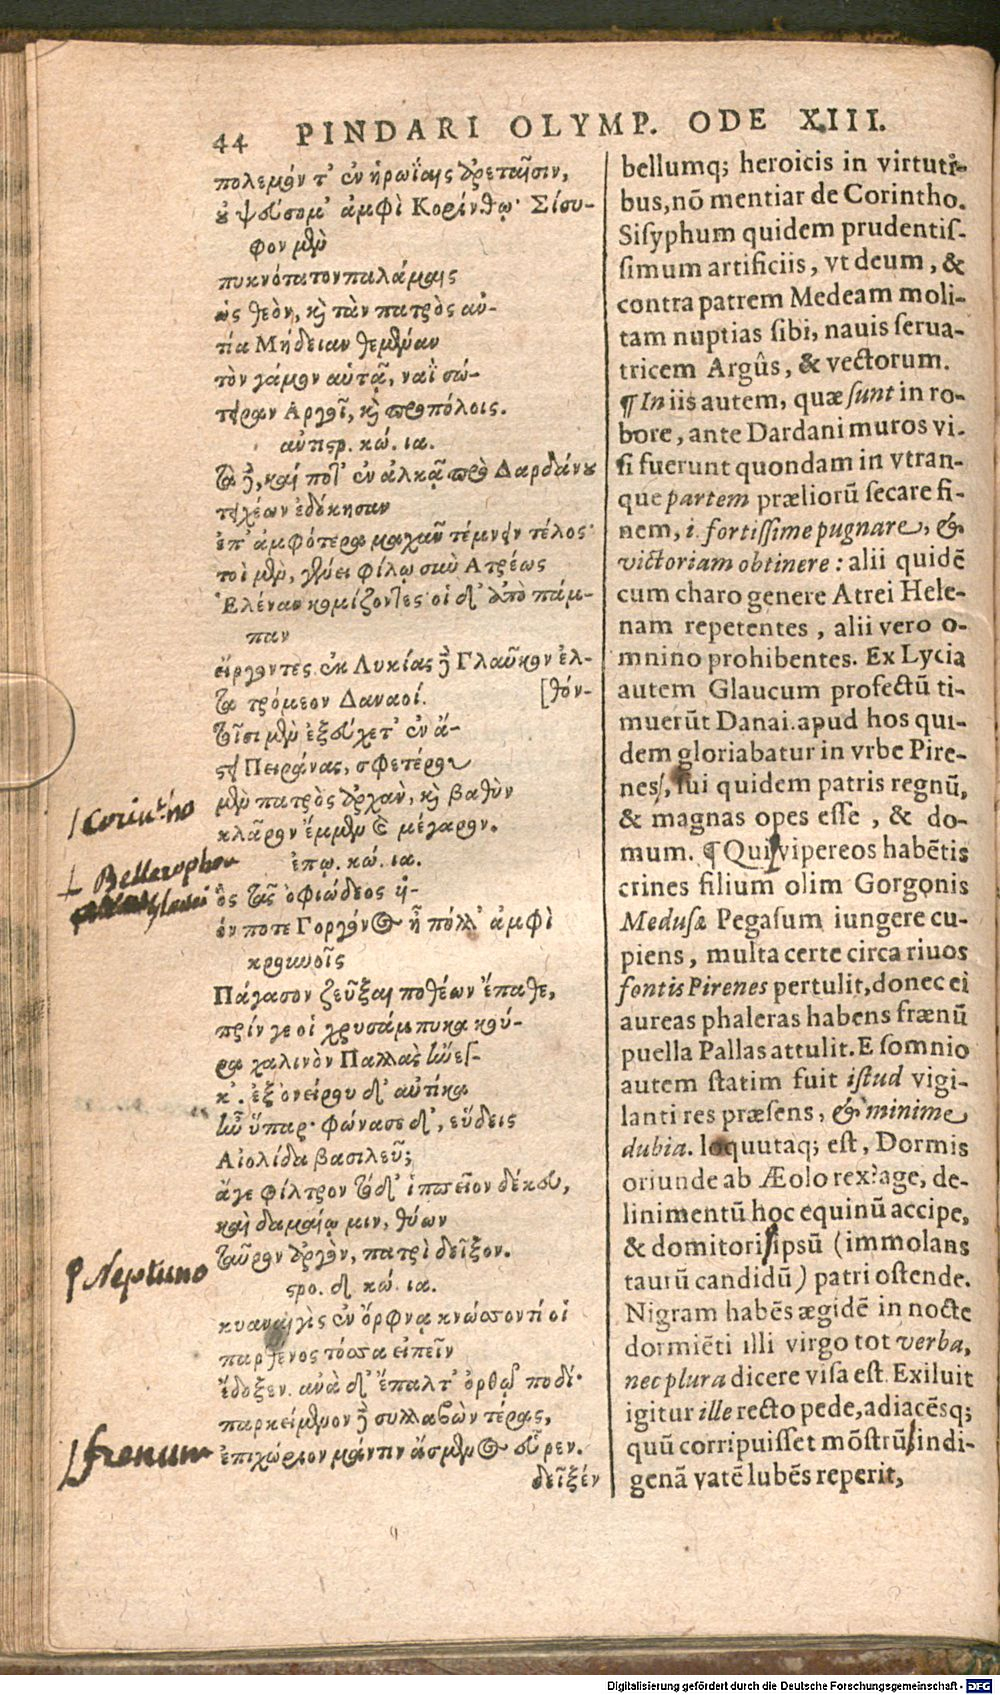 44 PINDARI OLYMP. ODE XIII.
πολεμόν τ' ἐν ἡρωΐαις ἀρεταῖσιν,
οὐ ψεύσομ' ἀμφὶ Κορίνθῳ· Σίσυ-
φον μὲν
πυκνότατον παλάμαις
ὡς θεὸν, καὶ τὰν πατρὸς αὐ-
τία Μήδειαν θεμέναν
τὸν γάμον αὑτᾷ, ναῒ σώ-
τειραν Ἀργοῖ, καὶ προπόλοις.
ἀντιστρ. κώ. ια.
Τὰ δὲ, καί ποτ' ἐν ἀλκᾷ πρὸ Δαρδάνου
τειχέων ἐδόκησαν
ἐπ' ἀμφότερα μαχᾶν τέμνειν τέλος·
τοὶ μὲν, γένει φίλῳ σὺν Ἀτρέως
Ἑλέναν κομίζοντες· οἱ δ' ἀπὸ πάμ-
παν
εἴργοντες. ἐκ Λυκίας δὲ Γλαῦκον ἐλ-
τα τρόμεον Δαναοί. [θόν-
τοῖσι μὲν ἐξεύχετ' ἐν ἄ-
στει Πειράνας, σφετέρου
μὲν πατρὸς ἀρχὰν, καὶ βαθὺν
κλᾶρον ἔμμεν καὶ μέγαρον.
ἐπῳ. κώ. ια.
ὃς τᾶς ὀφιώδεος υἱ-
όν ποτε Γοργόνος ἦ πόλλ' ἀμφὶ
κρουνοῖς
Πάγασον ζεῦξαι ποθέων ἔπαθε,
πρίν γε οἱ χρυσάμπυκα κού-
ρα χαλινὸν Παλλὰς ἤνεγ-
κ'. ἐξ ὀνείρου δ' αὐτίκα
ἦν ὕπαρ· φώνασε δ', εὕδεις
Αἰολίδα βασιλεῦ;
ἄγε φίλτρον τόδ' ἵππειον δέκευ,
καὶ δαμαίῳ μιν, θύων
ταῦρον ἀργὸν, πατρὶ δεῖξον.
στρο. δ. κώ. ια.
κυαναιγὶς ἐν ὄρφνᾳ κνώσσοντί οἱ
παρθένος τόσσα εἰπεῖν
ἔδοξεν. ἀνὰ δ' ἔπαλτ' ὀρθῷ ποδί·
παρκείμενον δὲ συλλαβὼν τέρας,
ἐπιχώριον μάντιν ἄσμενος εὗρεν.
δεῖξέν
bellumq; heroicis in virtuti-
bus, nõ mentiar de Corintho.
Sisyphum quidem prudentis-
simum artificiis, vt deum, &
contra patrem Medeam moli-
tam nuptias sibi, nauis serua-
tricem Argûs, & vectorum.
¶ In iis autem, quæ sunt in ro-
bore, ante Dardani muros vi-
si fuerunt quondam in vtran-
que partem præliorũ secare fi-
nem, i. fortissime pugnare, &
victoriam obtinere: alii quidẽ
cum charo genere Atrei Hele-
nam repetentes, alii vero o-
mnino prohibentes. Ex Lycia
autem Glaucum profectũ ti-
muerũt Danai. apud hos qui-
dem gloriabatur in vrbe Pire-
nes, sui quidem patris regnũ,
& magnas opes esse, & do-
mum. ¶ Qui vipereos habẽtis
crines filium olim Gorgonis
Medusæ Pegasum iungere cu-
piens, multa certe circa riuos
fontis Pirenes pertulit, donec ei
aureas phaleras habens frænũ
puella Pallas attulit. E somnio
autem statim fuit istud vigi-
lanti res præsens, & minime
dubia. loquutaq; est, Dormis
oriunde ab Æolo rex? age, de-
linimentũ hoc equinũ accipe,
& domitori ipsũ (immolans
taurũ candidũ) patri ostende.
Nigram habẽs ægidẽ in nocte
dormiẽti illi virgo tot verba,
nec plura dicere visa est. Exiluit
igitur ille recto pede, adiacẽsq;
quũ corripuisset mõstrũ, indi-
genã vatẽ lubẽs reperit,
Corintho
Bellerophon
Glauci
Neptuno
frenum
Digitalisierung gefördert durch die Deutsche Forschungsgemeinschaft - DFG